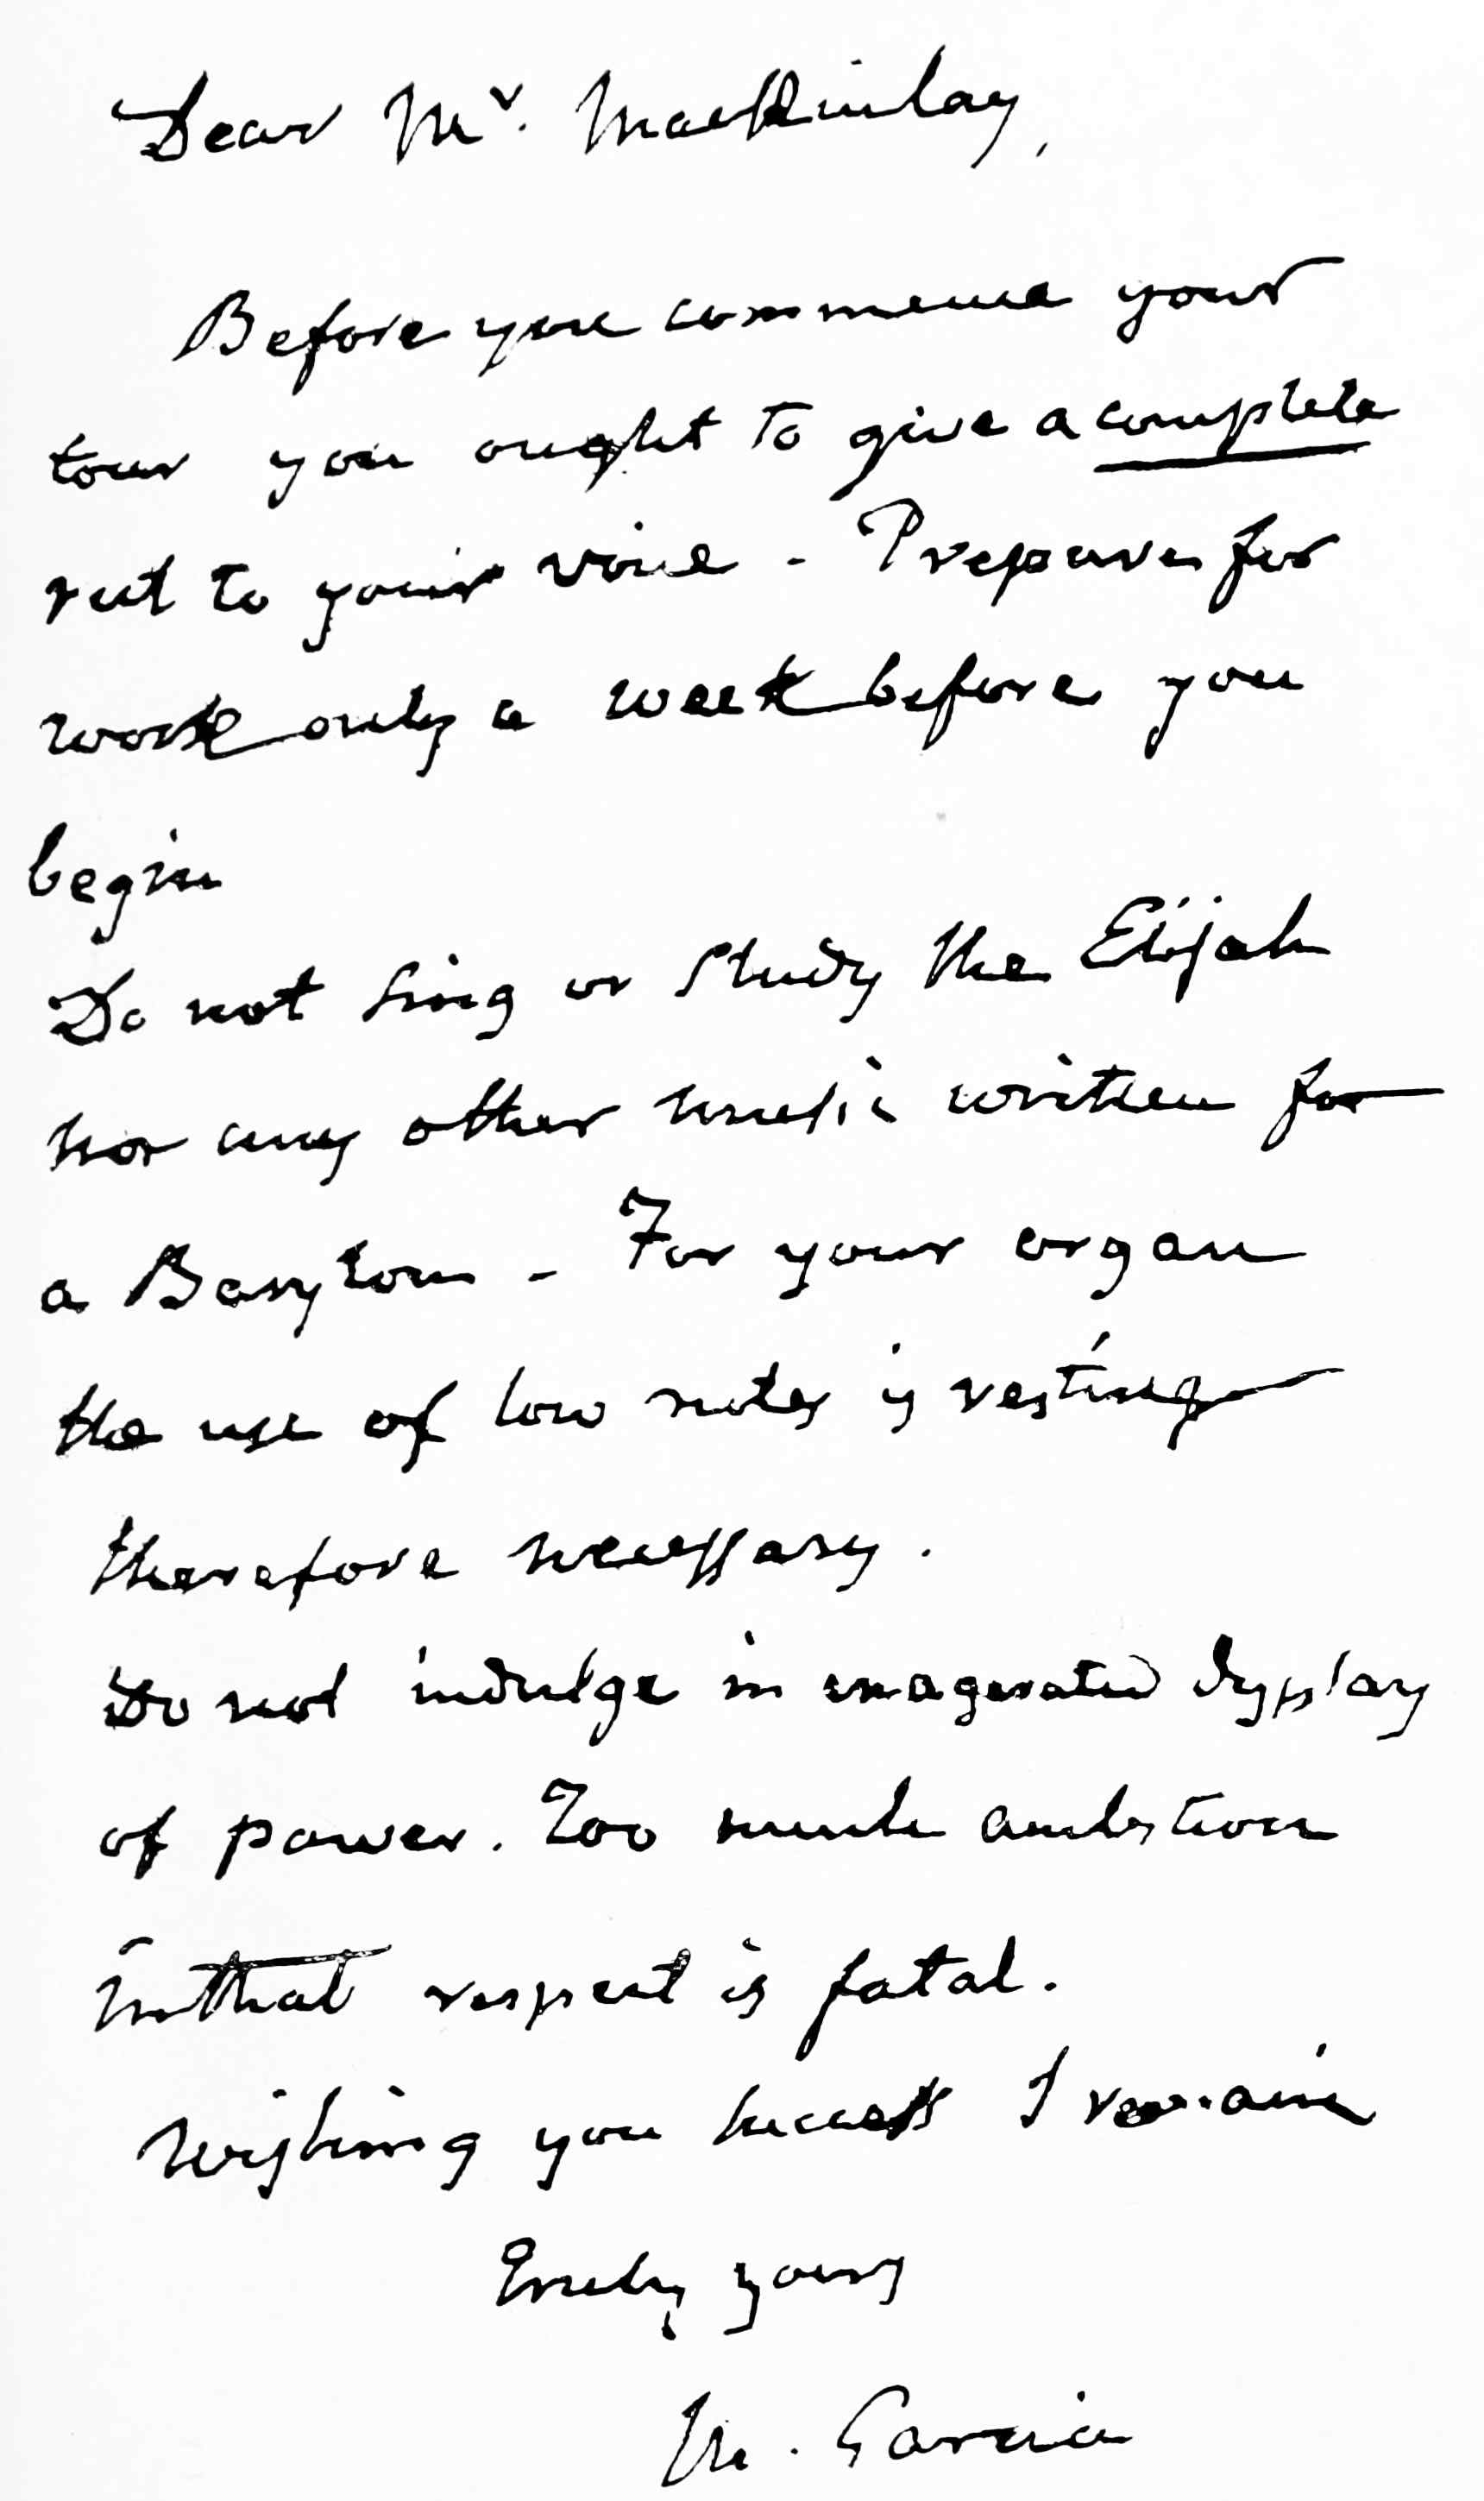 Dear Mr. MacKinlay,
Before you commence your
tour you ought to give a complete
rest to your voice - Prepare for
work only a week before you
begin
Do not sing or study the Elijah
nor any other music written for
a Baryton - For your organ
the use of low notes is resting
therefore necessary.
Do not indulge in exagerated dysplay
of power. Too much ambition
in that respect is fatal.
Wishing you success I remain
Truly yours
M. Garcia